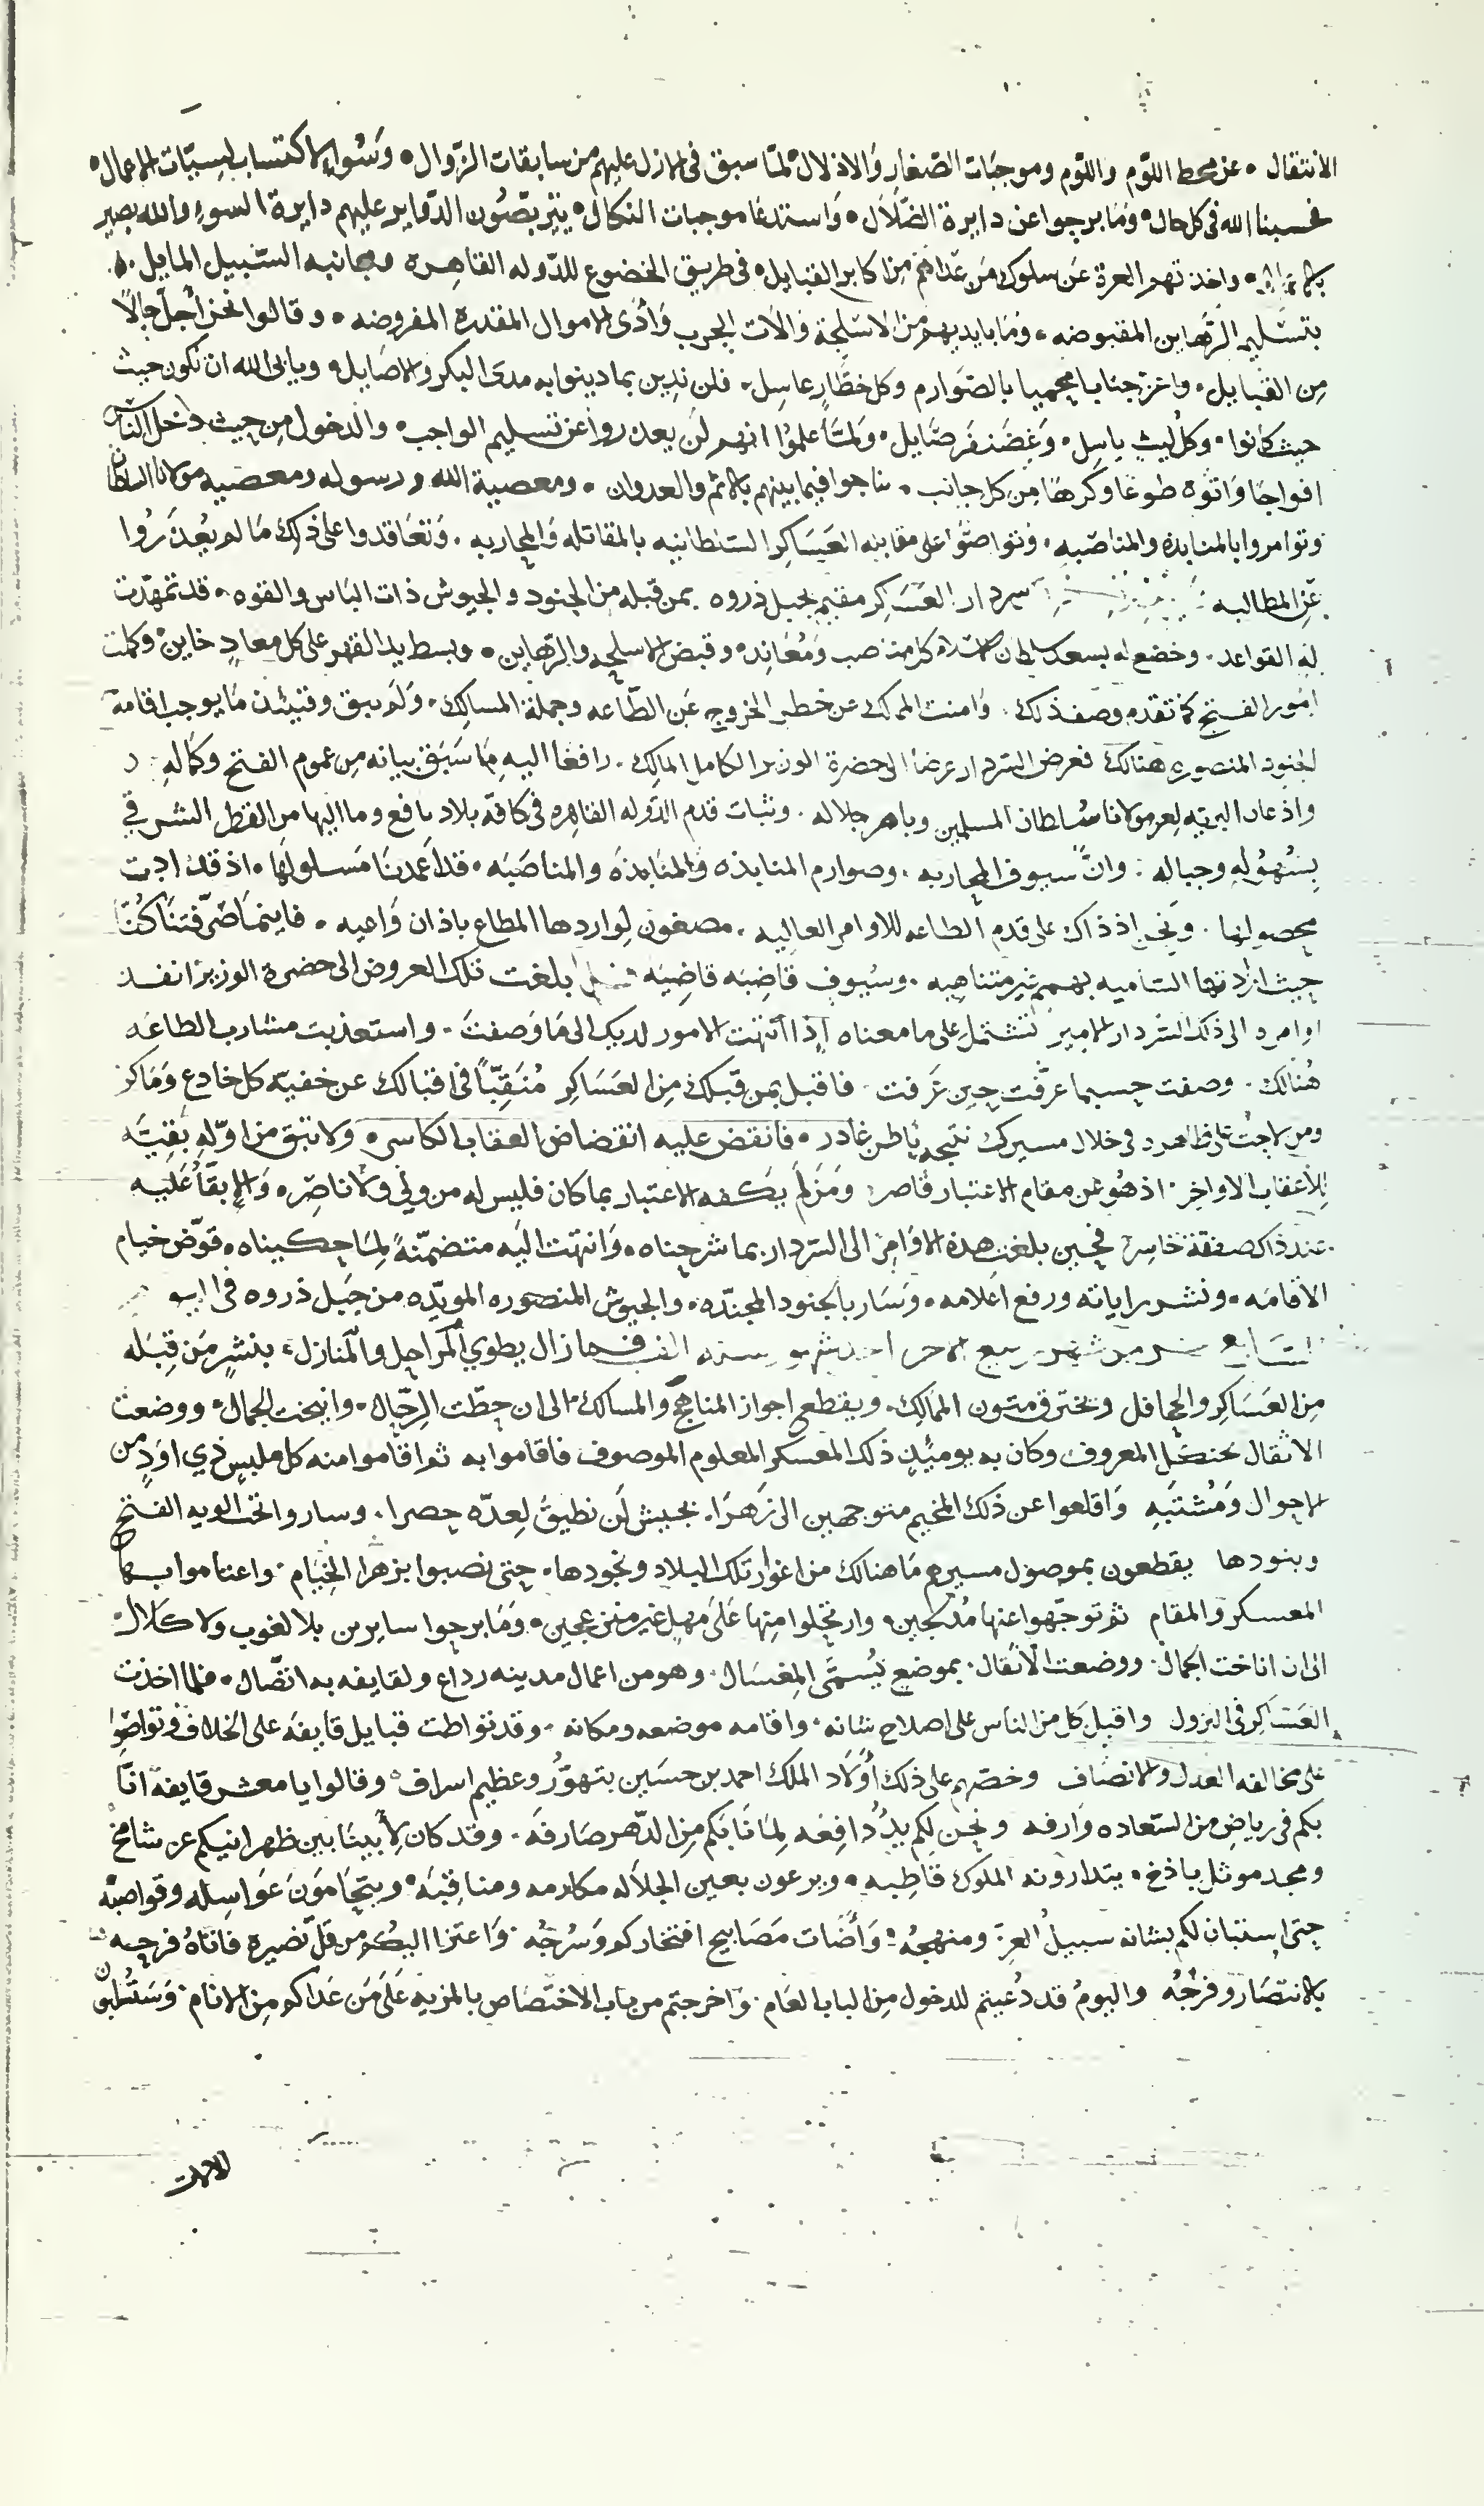 الانتقال • عن محط اللوم واللوم وموجبات الصغار والاذلال • لما سبق فى الازل عليهم من سابقات الزوال • وسوء الاكتساب لسيئات الاعمال •
فحسبنا الله فى كل حال • وما برحوا عن دايرة الضلال • واستدعا موجبات النكال • يتربصون الدواير عليهم دايرة السوء والله بصير
واخذتهم العزة عن سلوك من عداهم من اكابر القبايل • فى طريق الخضوع للدوله القاهرة ومجانبه السبيل المايل •
بتسليم الرهاين المقبوضه • وما بايديهم من الاسلحة والات الحرب وادى الاموال المقدرة المفروضه • وقالوا نحن اجل حالا
من القبايل • واعز جنابا محميا بالصوارم وكل خطار عاسل • فلن ندين بما دينوا به مدى البكر والاصايل • ويابى الله ان نكون حيث
حيث كانوا • وكل ليث باسل • وغضنفر صايل • ولما علموا انهم لن يعدروا عن تسليم الواجب • والدخول من حيث دخل الناس
افواجا واتوه طوعا وكرها من كل جانب • تناجوا فيما بينهم بالاثم والعدوان • ومعصية الله ورسوله ومعصيه مولانا السلطان
وتوامروا بالمنابذه والمناصبه • وتواصوا على مقابله العساكر السلطانيه بالمقاتله والمحاربه • وتعاقدوا على ذلك ما لم يعذروا
عن المطالبه سردار العسكر مقيم بجبل ذروه بمن قبله من الجنود والجيوش ذات الباس والقوه • قد تمهدت
له القواعد • وخضع له بسعد سلطان كل مناصب ومعانده وقبض الاسلحه والرهاين • وبسط يد القهر على كل معاد خاين • وكملت
امور الفتح كما تقدم وصف ذلك • وامنت الممالك عن خطر الخروج عن الطاعه وجملة المسالك • ولم يبق وقتيئذ ما يوجب اقامة
الجنود المنصوره هنالك فعرض السردار عرضا الى حضرة الوزير الكامل المالك • رافعا اليه ما سبق بيانه من عموم الفتح وكماله
واذعان البريه لعز مولانا سلطان المسلمين وباهر جلاله • وثبات قدم الدوله القاهره فى كافة بلاد يافع وما اليها من القطر الشرقي
بسهوله وجباله • وان سيوف المحاربه • وصوارم المنابذه والمنابذه والمناصبه • قد اغمدنا مسلولها • اذ قد
محصولها • ونحن اذ ذاك على قدم الطاعه للاوامر العاليه • مصغون لواردها المطاع باذان واعيه • فاينما صرفتنا كنا
حيث ارادتها الساميه بهمم غير متناهيه • وسيوف قاضبه قاضيه بلغت تلك العروض الى حضرة الوزير انفذ
اوامره الى ذلك السردار الامير تشتمل على ما معناه اذا انتهت الامور لديك الى ما وصفت • واستعذبت مشارب الطاعه
هنالك • وصفت حسبما عرفت حين عرفت • فاقبل بمن قبلك من العساكر منقبا فى اقبالك عن خفية كل خادع وماكر
ومن لاحت فى خلال مسيرك نتيجه باطن غادر • فانقض عليه انقضاض العقاب الكاسر • ولا تبق من اوله بقيه
للاعقاب الاواخر • اذ هو عن مقام الاعتبار قاصر • ومن لم يكفه الاعتبار بما كان فليس له من ولي ولا ناصر • والابقا عليه
عند ذاك صفقة خاسره فحين بلغت هذه الاوامر الى السردار بما شرحناه • وانتهت اليه متضمنة لما حكيناه • قوض خيام
الاقامه • ونشر راياته ورفع اعلامه • وسار بالجنود المجنده • والجيوش المنصوره المويده من جبل ذروه فى
السابع من شهر ربيع الاخر فما زال يطوي المراحل والمنازل • بنشر من قبله
من العساكر والجحافل ويخترق متون الممالك • ويقطع اجواز المناهج والمسالك • الى ان حطت الرحال • وانيخت الجمال • ووضعت
الاثقال المعروف وكان به يوميئذ ذلك المعسكر المعلوم الموصوف فاقاموا به ثم اقاموا منه كل ملبس ذي اود من
الاحوال ومشتبه واقلعوا عن ذلك المخيم متوجهين الى زهرا • بجيش لن نطيق لعده حصرا • وساروا تحت الويه الفتح
وبنودها يقطعون بموصول مسيرهم ما هنالك من اغوار تلك البلاد ونجودها • حتى نصبوا بزهرا الخيام • واعتاموا بها
المعسكر والمقام ثم توجهوا عنها مدلجين • وارتحلوا منها على مهل غير منزعجين • وما برحوا سايرين بلا لغوب ولا كلال •
الى ان اناخت الجمال • ووضعت الاثقال • بموضع يسمى المغسال • وهو من اعمال مدينه رداع ولقايفه به اتصال • فلما اخذت
العساكر فى النزول واقبل كل من الناس على اصلاح شانه • واقامه موضعه ومكانه • وقد تواطت قبايل قايفه على الخلاف وتواصوا
على مخالفه العدل والانصاف وخصهم على ذلك اولاد الملك احمد بن حسين بتهور وعظيم اسراف • وقالوا يا معشر قايفة انا
بكم فى رياض من السعاده وارفه ونحن لكم يد دافعه لما نابكم من الدهر صارفه • وقد كان لابينا بين ظهرانيكم عز شامخ
ومجد موثل باذخ • يتدارونه الملوك قاطبه • ويرعون بعين الجلاله مكارمه ومناقبه • ويتحامون عواسله وقواضبه
حتى استبان لكم بشانه سبيل العز ومنهجه • واضات مصابيح افتخاركم وسرجه • واعتزا اليكم من قل نصيره فاتاه فرجه
بالانتصار وفرجه واليوم قد دعيتم للدخول من الباب العام • واخرجتم من باب الاختصاص بالمزيه على من عداكم من الانام • وستسلبون